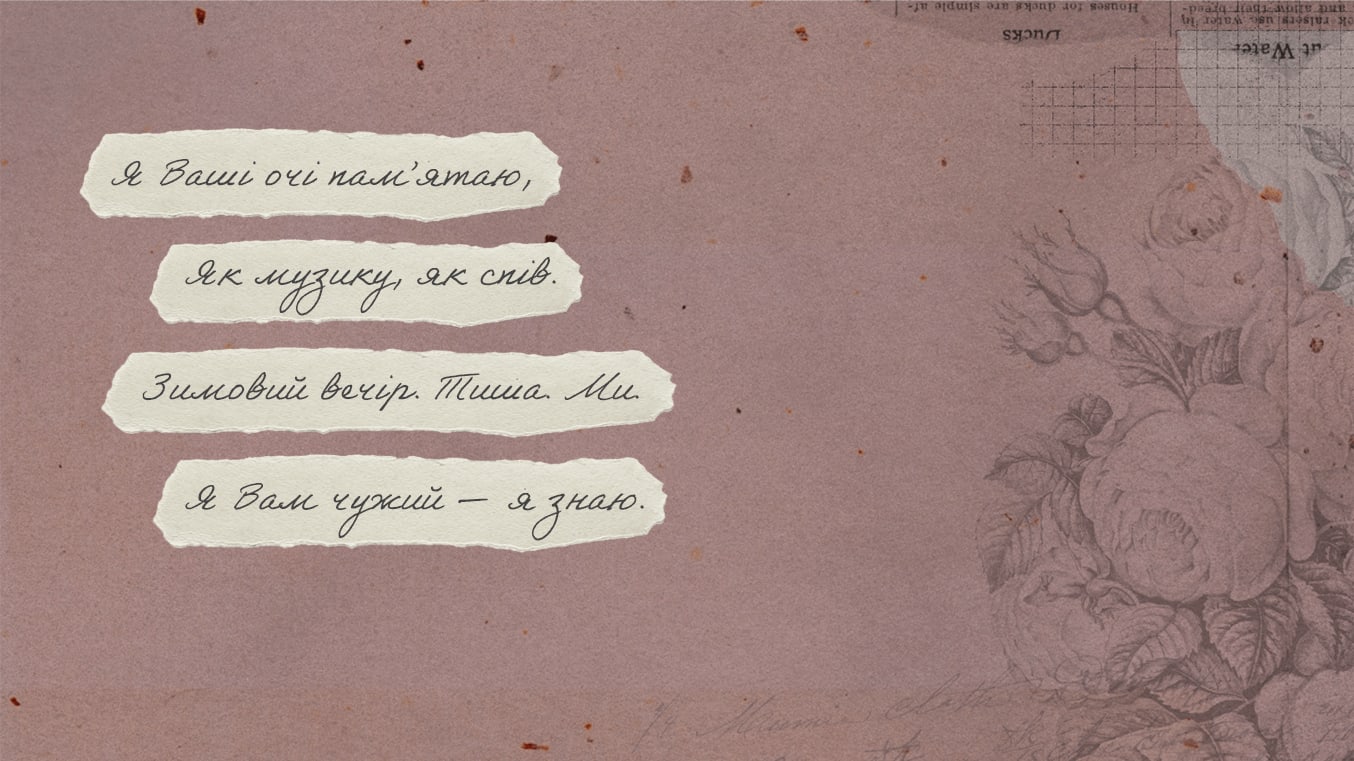 Я Ваші очі пам’ятаю,
Як музику, як спів.
Зимовий вечір. Тиша. Ми.
Я Вам чужий — я знаю.
Houses for ducks are simple af-
Ducks
and allow their breed-
raisers use water in
ut Water